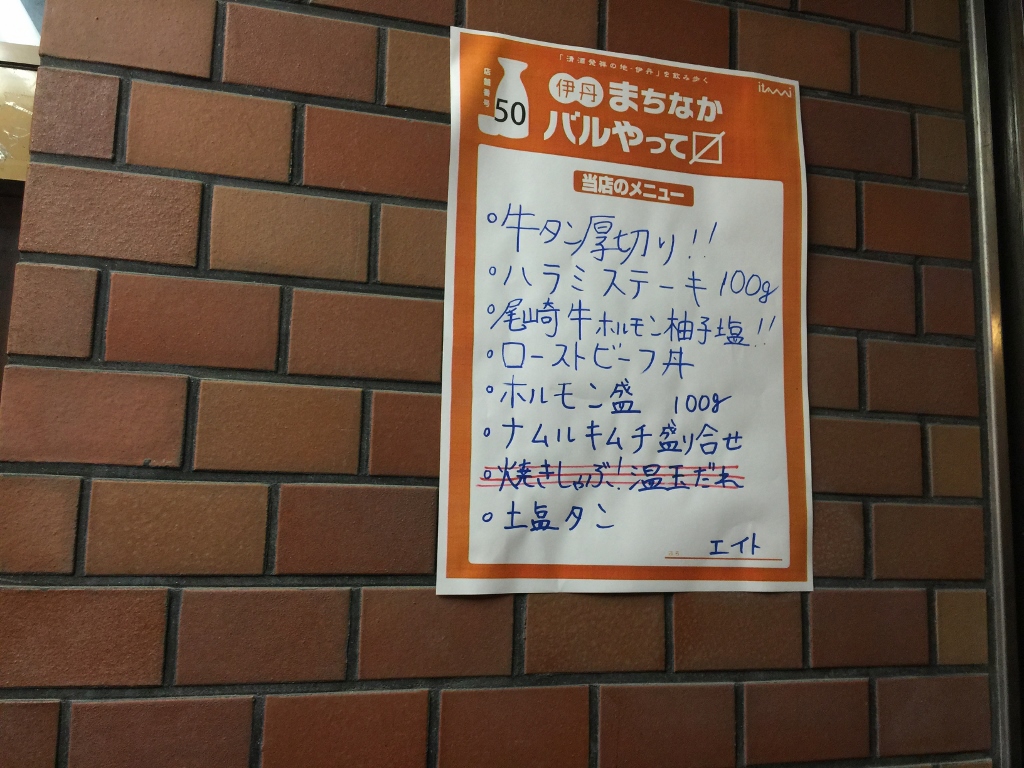 「清酒発祥の地・伊丹」を飲み歩く
itami
店舗番号
50
伊丹 まちなか
バルやって〼
当店のメニュー
。牛タン厚切り!!
。ハラミステーキ 100g
。尾崎牛ホルモン柚子塩!!
。ローストビーフ丼
。ホルモン盛 100g
。ナムルキムチ盛り合せ
。焼きしゃぶ!温玉だれ
。土塩タン
店名
エイト